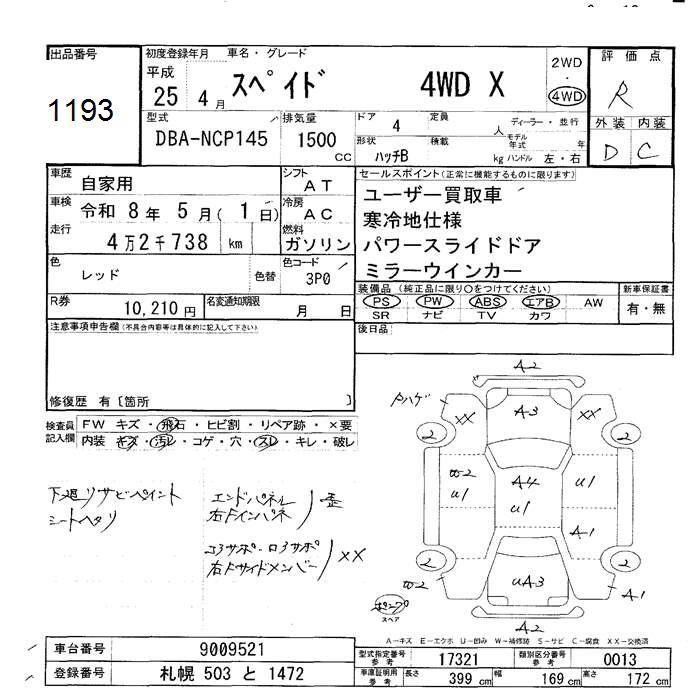 出品番号
1193
初度登録年月 車名・グレード
平成 25 4月
スペイド 4WD X
2WD
・
4WD
評価点
R
型式
DBA-NCP145
排気量
1500
cc
ドア 4 定員 人
形状 ハッチB 積載 kg
ディーラー・並行
モデル年式 年
ハンドル 左・右
外装 内装
D C
車歴
自家用
シフト
AT
車検
令和 8年 5月(1日)
冷房
AC
走行
4万2千738 km
燃料
ガソリン
色
レッド
色替
色コード
3P0
R券
10,210円
名変通知期限
月 日
セールスポイント(正常に機能するものに限ります)
ユーザー買取車
寒冷地仕様
パワースライドドア
ミラーウインカー
装備品(純正品に限り○をつけてください)
PS PW ABS エアB AW
SR ナビ TV カワ
新車保証書
有・無
後日品
注意事項申告欄(不具合内容等は具体的に記入して下さい)
修復歴 有〔箇所 〕
検査員記入欄
FW キズ・飛石・ヒビ割・リペア跡・×要
内装 キズ・汚レ・コゲ・穴・スレ・キレ・破レ
下廻リサビペイント
シートヘタリ
エンドパネル
右Fインパネ
歪
コアサポ・ロアサポ
右Fサイドメンバー
XX
A2
Pハゲ
XX
A3
XX
2
2
W2
U1
A4
U1
U1
A1
2
2
W2
UA3
A1
パンク
スペア
A2
A-キズ E-エクボ U-凹み W-補修跡 S-サビ C-腐食 XX-交換済
車台番号
9009521
登録番号
札幌 503 と 1472
型式指定番号
参考
17321
類別区分番号
参考
0013
車庫証明用
参考
長さ 399 cm
幅 169 cm
高さ 172 cm